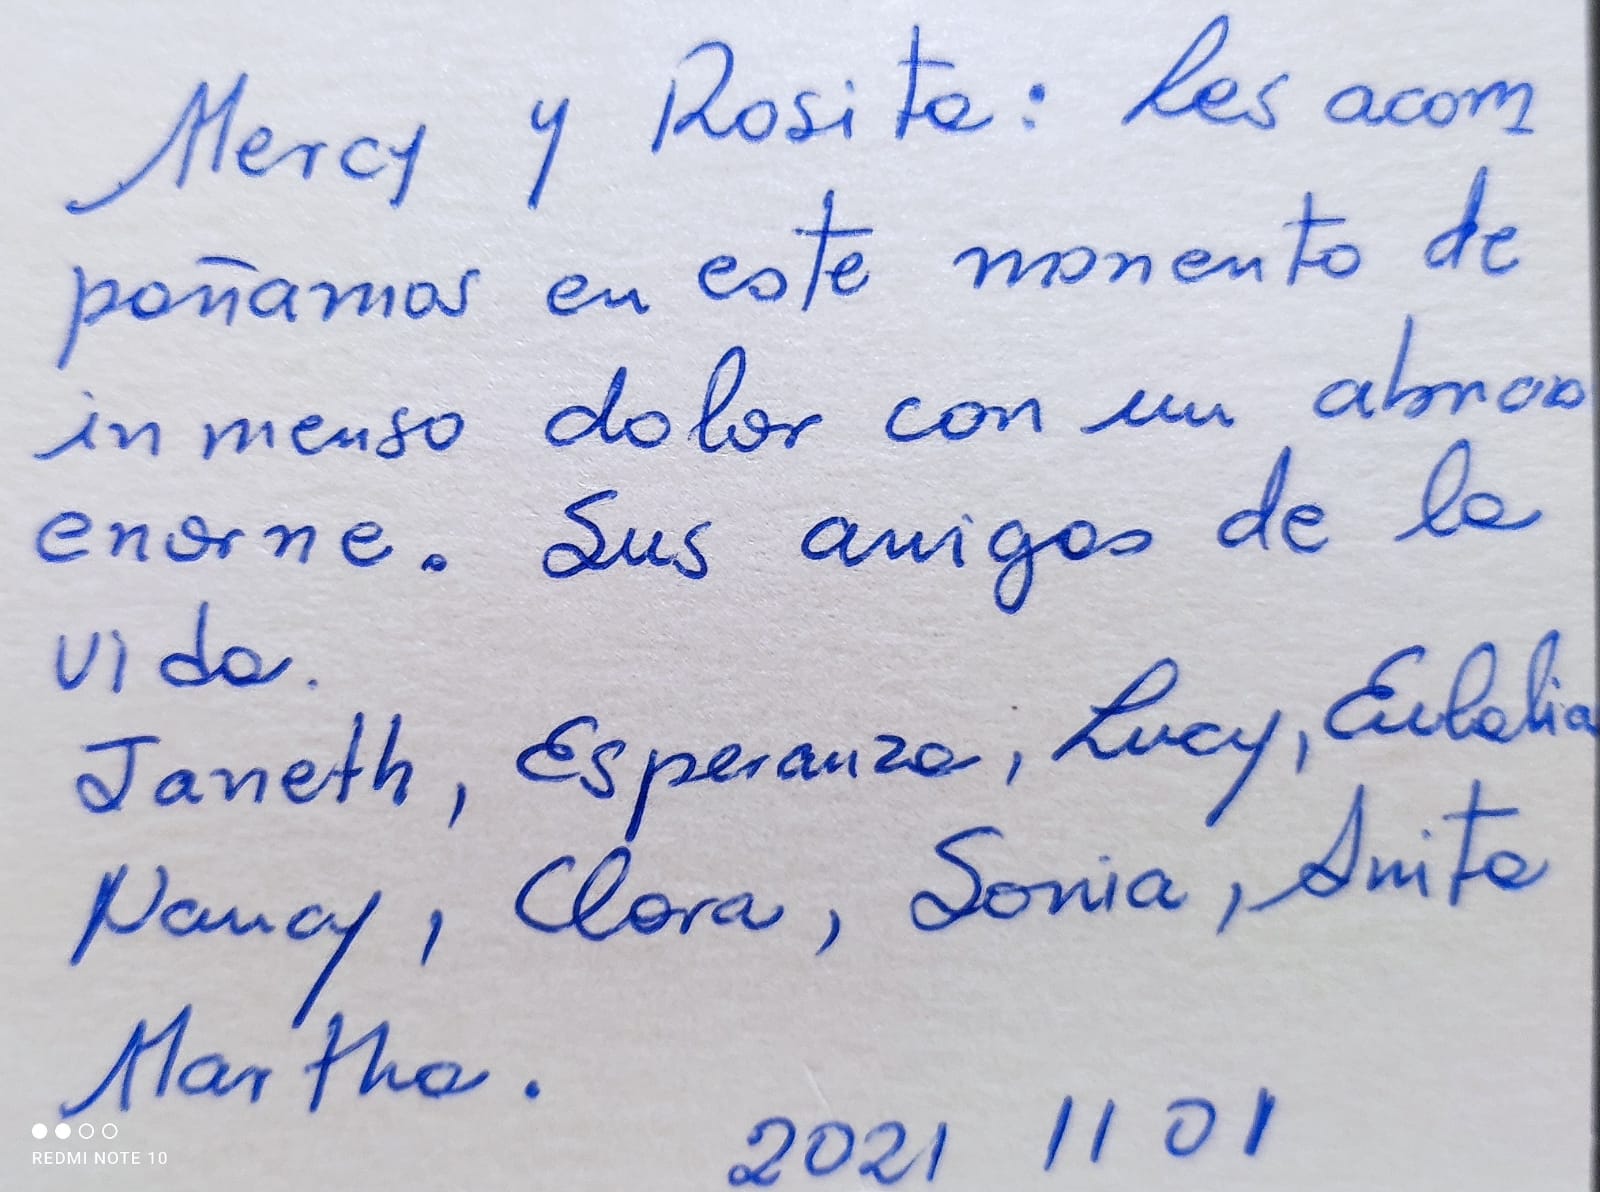 Mercy y Rosita: Les acom
pañamos en este momento de
inmenso dolor con un abrazo
enorme. Sus amigas de la
vida.
Janeth, Esperanza, Lucy, Eulalia
Nancy, Clara, Sonia, Anita
Martha.
2021 11 01
REDMI NOTE 10